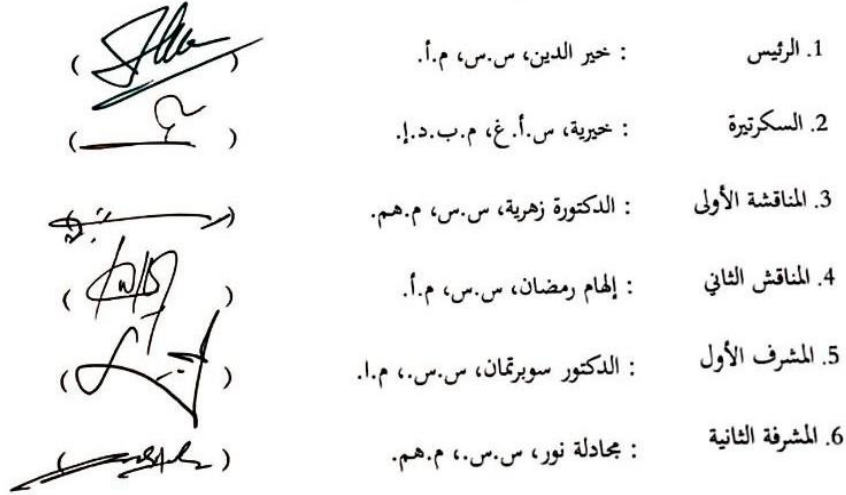 1. الرئيس : خير الدين، س.س، م.أ. ( )
2. السكرتيرة : خيرية، س.أ.غ، م.ب.د.إ. ( )
3. المناقشة الأولى : الدكتورة زهرية، س.س، م.هم. ( )
4. المناقش الثاني : إلهام رمضان، س.س، م.أ. ( )
5. المشرف الأول : الدكتور سوبرتمان، س.س.، م.ا. ( )
6. المشرفة الثانية : مجادلة نور، س.س.، م.هم. ( )